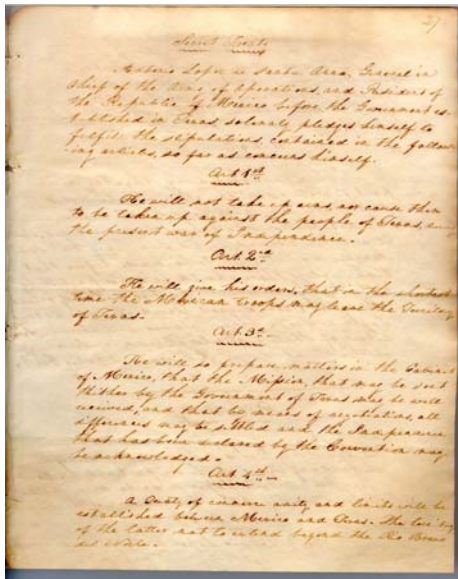 27
Secret Treaty
Antonio Lopez de Santa Anna, General in
Chief of the Army of Operations, and President of
the Republic of Mexico before the Government es-
tablished in Texas, solemnly pledges himself to
fulfill the stipulations, contained in the follow-
ing articles, so far as concerns himself.
Art 1st
He will not take up arms, nor cause them
to be taken up against the people of Texas, during
the present war of Independence.
Art. 2nd
He will give his orders, that in the shortest
time the Mexican troops may leave the Territory
of Texas.
Art. 3d
He will so prepare matters in the Cabinet
of Mexico, that the Mission, that may be sent
thither by the Government of Texas may be well
received, and that by means of negotiations, all
differences may be settled and the Independence
that has been declared by the Convention may
be acknowledged.
Art 4th
A treaty of commerce amity and limits will be
established between Mexico and Texas. The territory
of the latter not to extend beyond the Rio Bravo
del Norte.